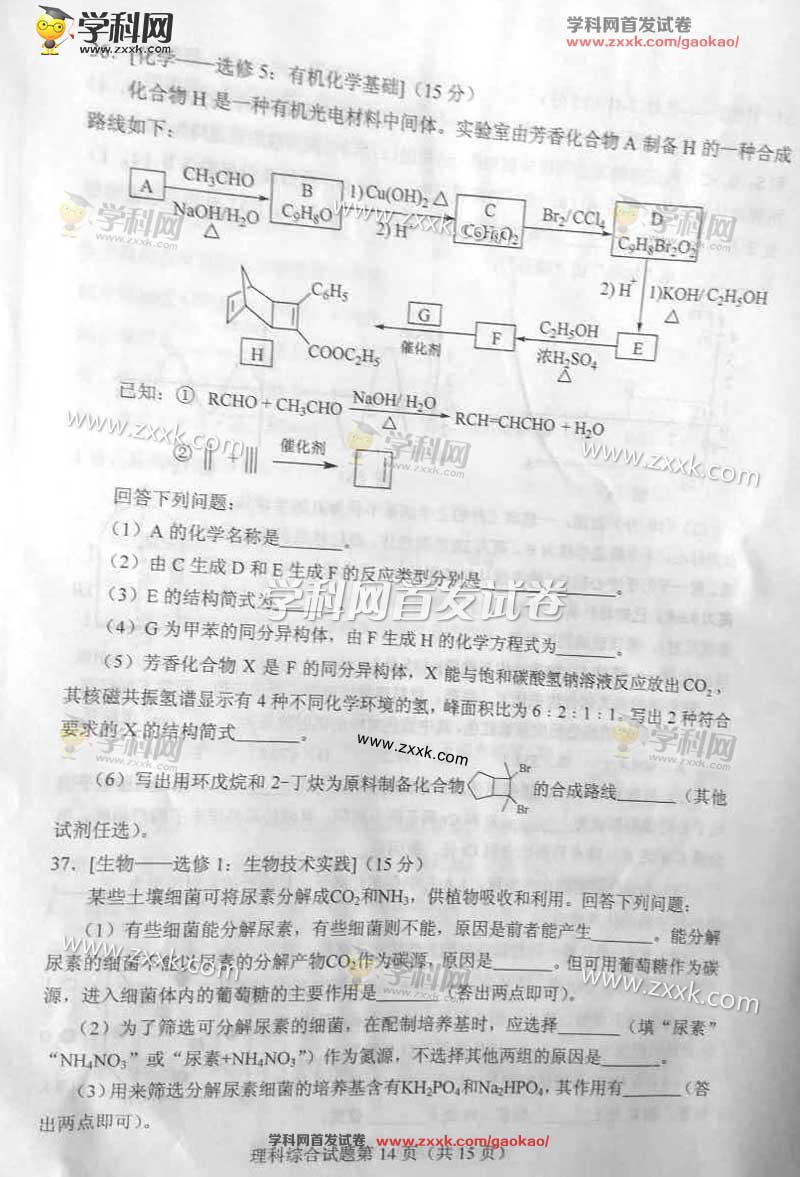 学科网
www.zxxk.com
学科网首发试卷
www.zxxk.com/gaokao/
36. [化学——选修5：有机化学基础]（15分）
化合物H是一种有机光电材料中间体。实验室由芳香化合物A制备H的一种合成
路线如下：
A
CH₃CHO
NaOH/H₂O
△
B
C₉H₈O
1)Cu(OH)₂ △
2) H⁺
C
C₉H₈O₂
Br₂/CCl₄
D
C₉H₈Br₂O₂
2) H⁺ 1)KOH/C₂H₅OH
△
C₆H₅
COOC₂H₅
H
G
催化剂
F
C₂H₅OH
浓H₂SO₄
△
E
已知：① RCHO + CH₃CHO NaOH/ H₂O △ RCH=CHCHO + H₂O
② + 催化剂
回答下列问题：
（1）A 的化学名称是______。
（2）由 C 生成 D 和 E 生成 F 的反应类型分别是______、______。
（3）E 的结构简式为______。
学科网首发试卷
（4）G 为甲苯的同分异构体，由 F 生成 H 的化学方程式为______。
（5）芳香化合物 X 是 F 的同分异构体，X 能与饱和碳酸氢钠溶液反应放出CO₂，
其核磁共振氢谱显示有 4 种不同化学环境的氢，峰面积比为 6：2：1：1。写出 2 种符合
要求的 X 的结构简式______。
www.zxxk.com
（6）写出用环戊烷和 2-丁炔为原料制备化合物 Br Br 的合成路线______（其他
试剂任选）。
37. [生物——选修 1：生物技术实践]（15 分）
某些土壤细菌可将尿素分解成CO₂和NH₃，供植物吸收和利用。回答下列问题：
（1）有些细菌能分解尿素，有些细菌则不能，原因是前者能产生______。能分解
尿素的细菌不能以尿素的分解产物CO₂作为碳源，原因是______。但可用葡萄糖作为碳
源，进入细菌体内的葡萄糖的主要作用是______（答出两点即可）。
（2）为了筛选可分解尿素的细菌，在配制培养基时，应选择______（填“尿素”
“NH₄NO₃”或“尿素+NH₄NO₃”）作为氮源，不选择其他两组的原因是______。
（3）用来筛选分解尿素细菌的培养基含有KH₂PO₄和Na₂HPO₄，其作用有______（答
出两点即可）。
学科网首发试卷 www.zxxk.com/gaokao/
理科综合试题第 14 页（共 15 页）